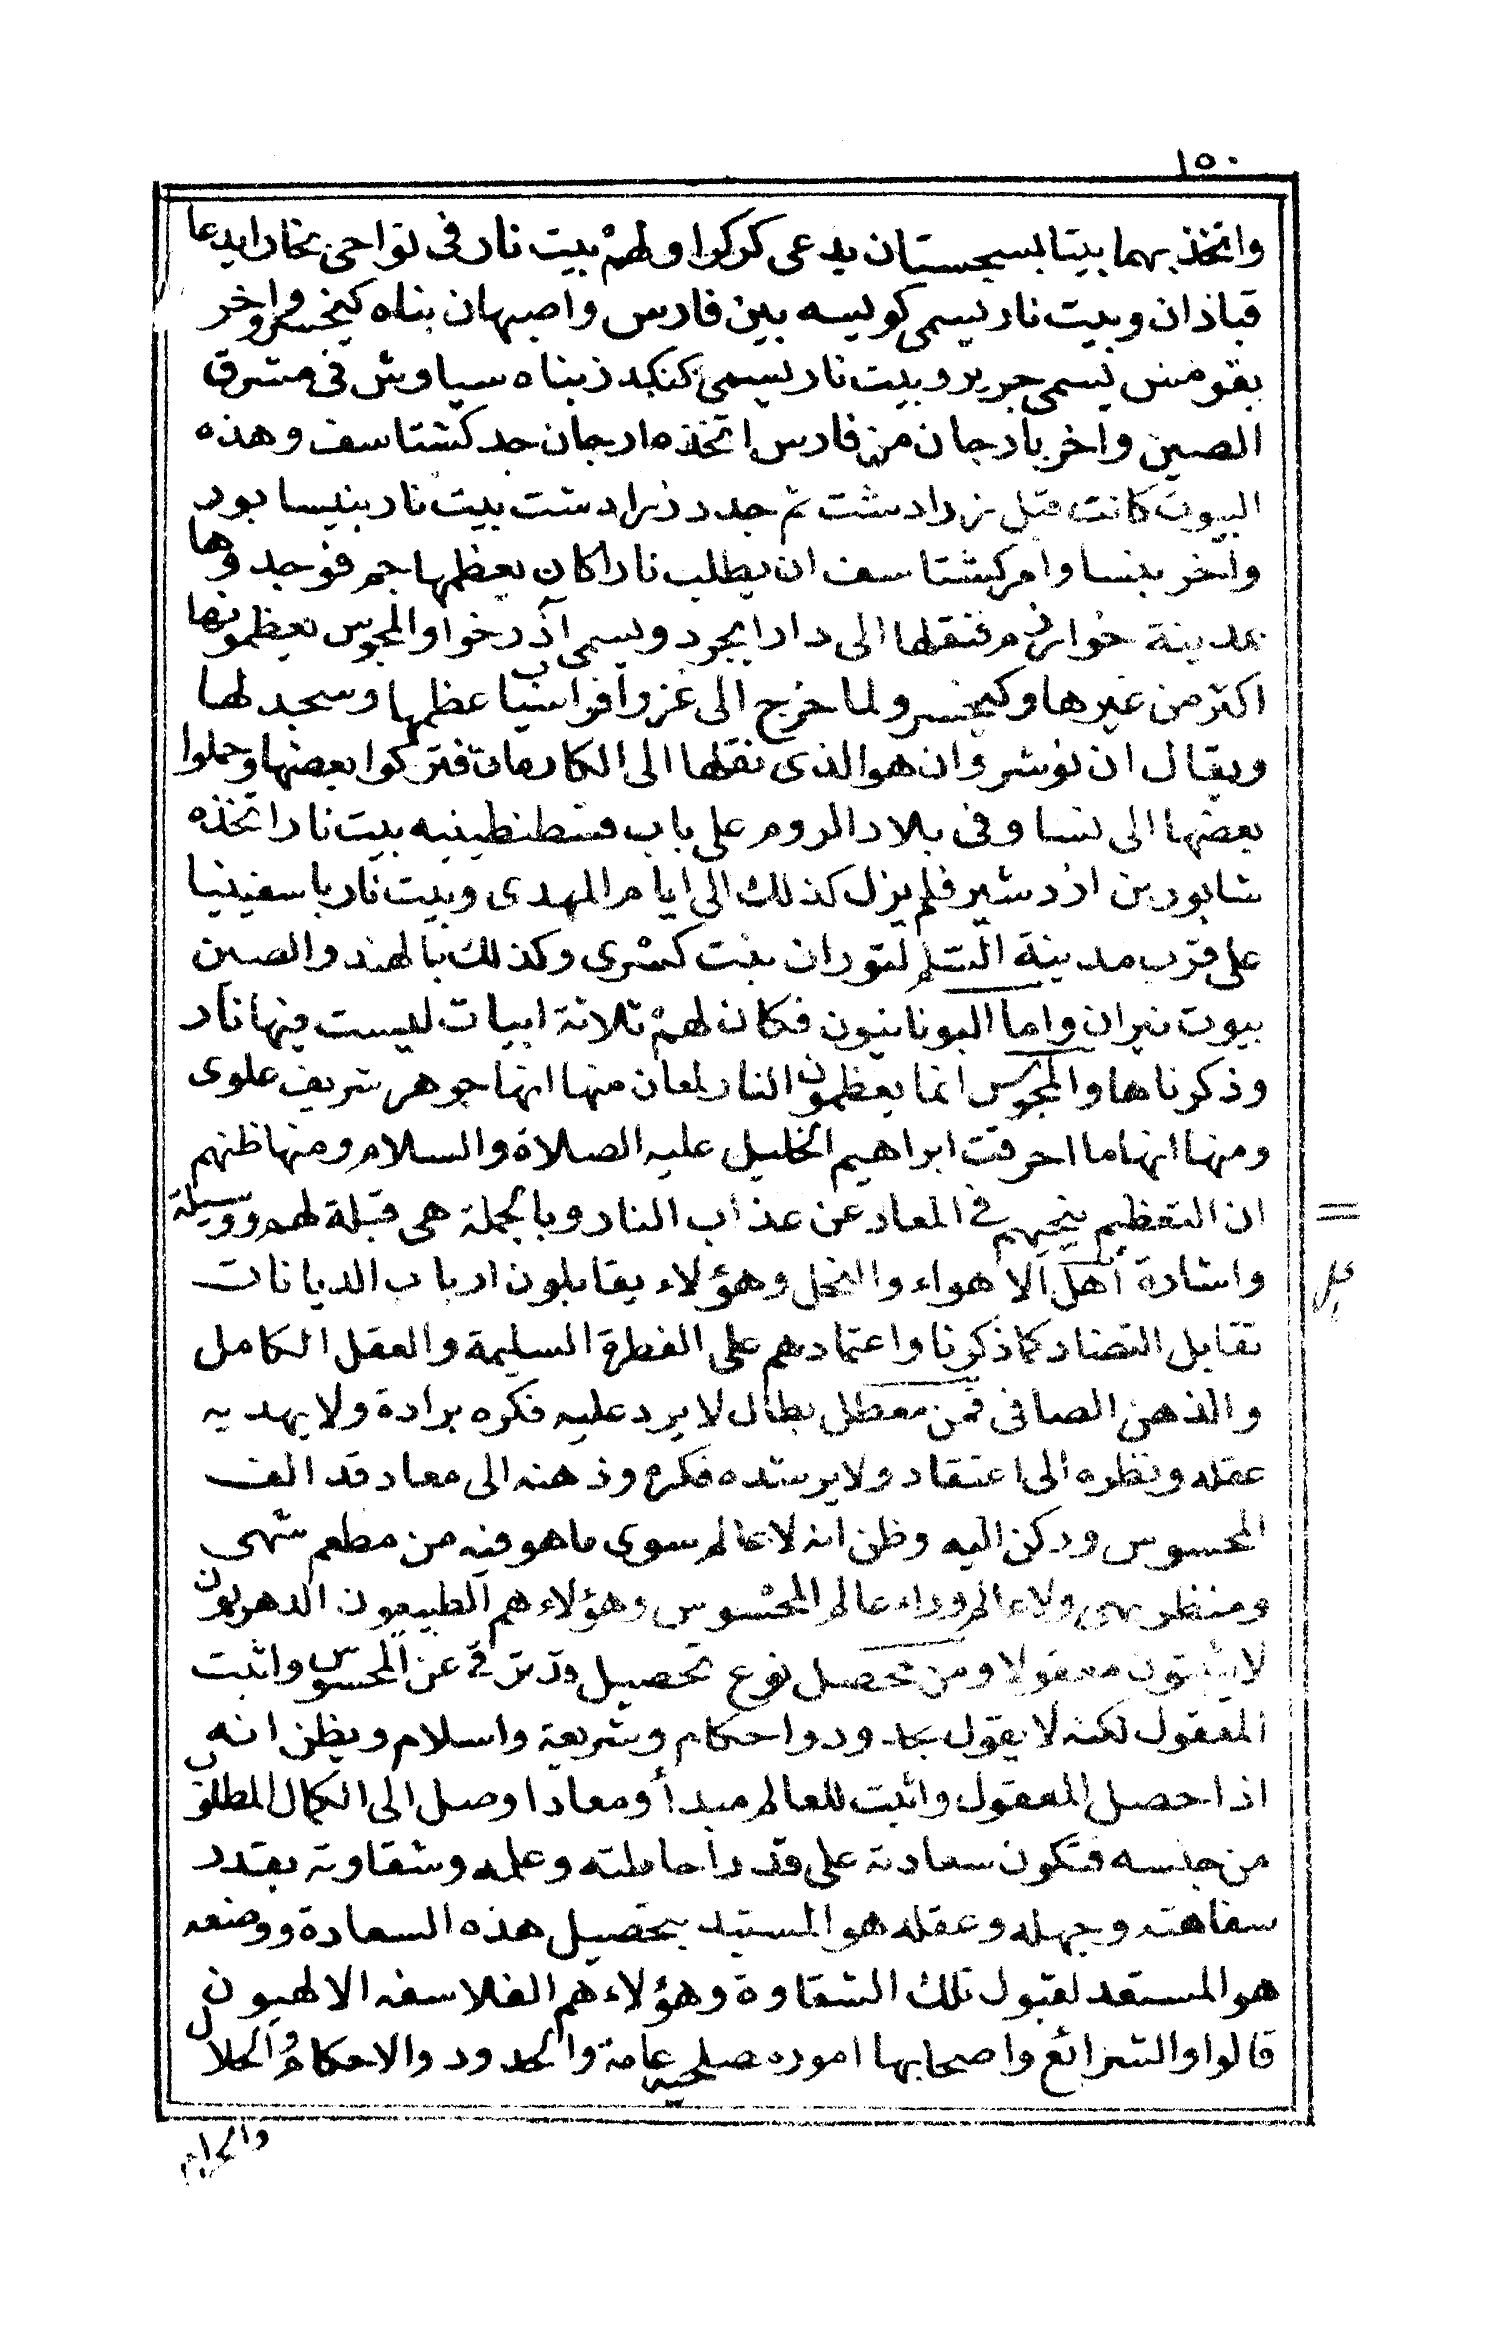 ١٥٠
واتخذ بهما بيتا بسجستان يدعى كركرا ولهم بيت نار فى نواحى بخارا يدعا
قباذان وبيت نار يسمى كويسه بين فارس واصبهان بناه كيخسرو واخر
بقومس يسمى جرير وبيت نار يسمى كنكدز بناه سياوش فى مشرق
الصين واخر بارجان من فارس اتخذه ارجان جد كشتاسف وهذه
البيوت كانت قبل زرادشت ثم جدد زرادشت بيت نار بنيسابور
واخر بنسا وامر كيشتاسف ان يطلب نارا كان يعظمها جم فوجدوها
بمدينة خوارزم فنقلها الى دارابجرد ويسمى آذرخوا والمجوس يعظمونها
اكثر من غيرها وكيخسرو لما خرج الى غزو افراسياب عظمها وسجد لها
ويقال ان نوشروان هو الذى نقلها الى الكارمان فتركوا بعضها وحملوا
بعضها الى نسا وفى بلاد الروم على باب قسطنطينيه بيت نار اتخذه
شابور بن ازدشير فلم يزل كذلك الى ايام المهدى وبيت نار باسفينيا
على قرب مدينة السلم لتوران بنت كسرى وكذلك بالهند والصين
بيوت نيران واما اليونانيون فكان لهم ثلاثة ابيات ليست فيها نار
وذكرناها والمجوس انما يعظمون النار لمعان منها انها جوهر شريف علوى
ومنها انها ما احرقت ابراهيم الخليل عليه الصلاة والسلام ومنها ظنهم
ان التعظيم ينجيهم فى المعاد عن عذاب النار وبالجملة هى قبلة لهم ووسيلة
واشارة أهل الاهواء والنحل وهؤلاء يقابلون ارباب الديانات
تقابل التضاد كما ذكرنا واعتمادهم على الفطرة السليمة والعقل الكامل
والذهن الصافى فمن معطل بطال لا يرد عليه فكره برادة ولا يهديه
عقله ونظره الى اعتقاد ولا يرشده فكره وذهنه الى معاد قد الف
المحسوس وركن اليه وظن انه لا عالم سوى ما هو فيه من مطعم شهى
ومنظر بهى ولا عالم وراء عالم المحسوس وهؤلاء هم الطبيعيون الدهريون
لا يثبتون معقولا ومن محصل نوع تحصيل قد ترقى عن المحسوس واثبت
المعقول لكنه لا يقول بحدود واحكام وشريعة واسلام ويظن انه
اذا حصل المعقول واثبت للعالم مبدأ ومعادا وصل الى الكمال المطلوب
من جنسه فتكون سعادته على قدر احاطته وعلمه وشقاوته بقدر
سفاهته وجهله وعقله هو المستبد بتحصيل هذه السعادة ووضعه
هو المستعد لقبول تلك الشقاوة وهؤلاء هم الفلاسفه الالهيون
قالوا والشرائع واصحابها اموره صلحية عامة والحدود والاحكام والحلال
والحرام